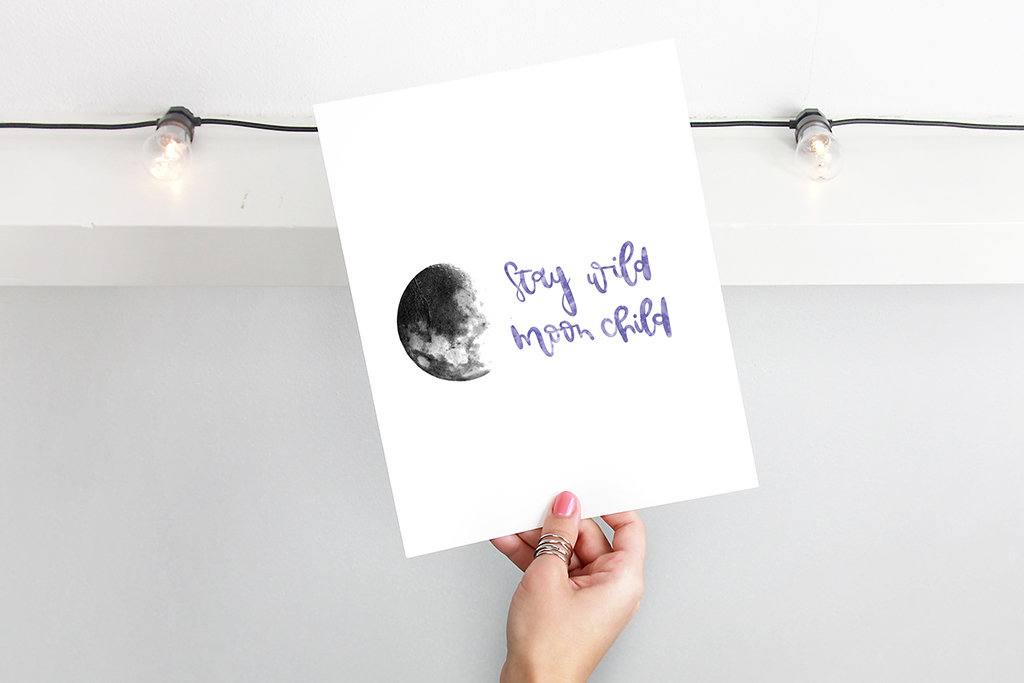 Stay wild
moon child